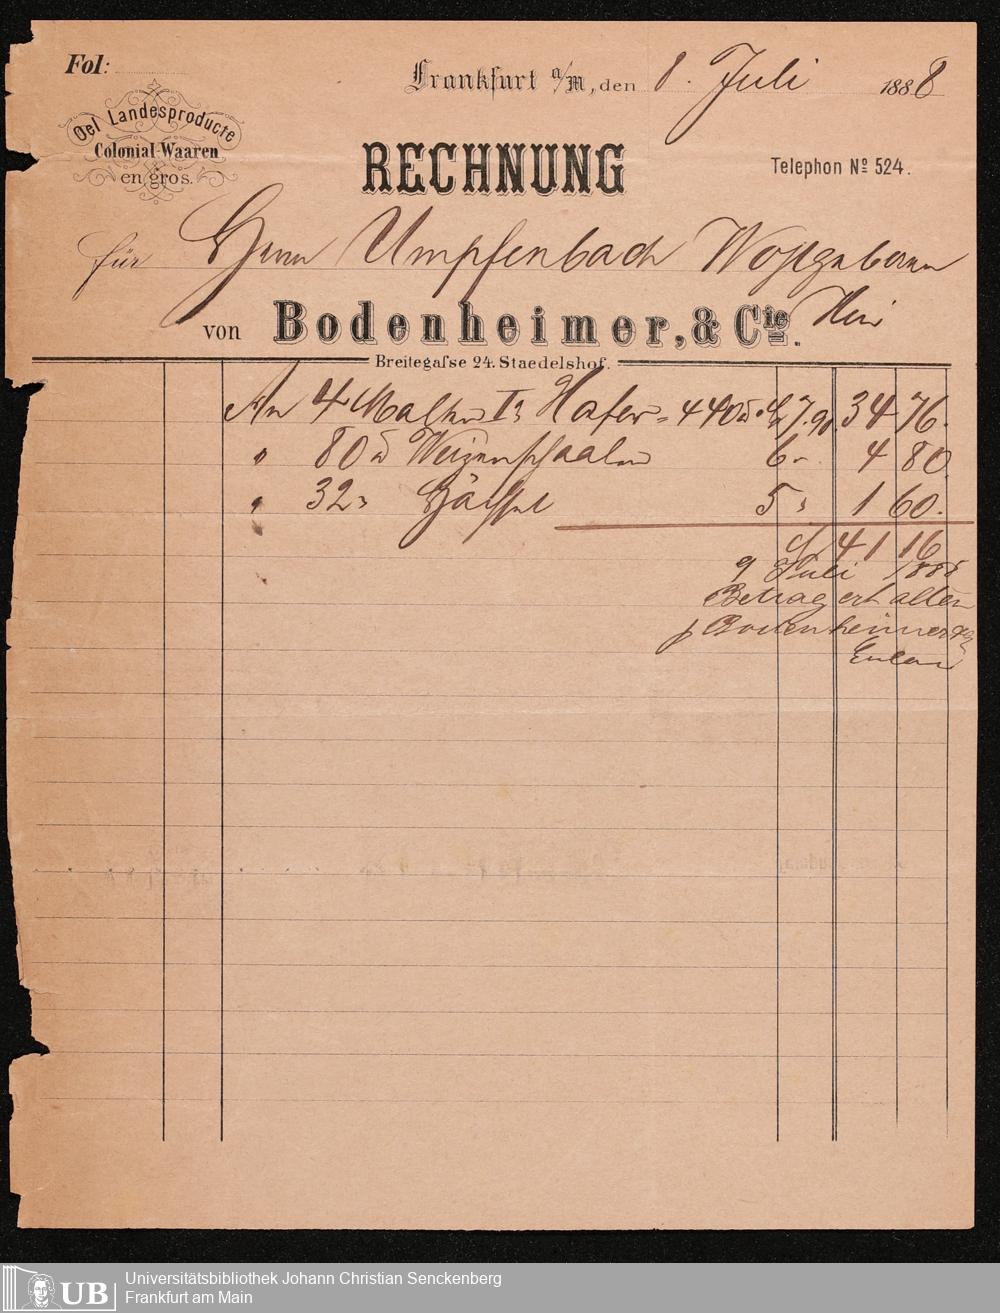 Fol:
Frankfurt a/M, den 8. Juli 1888
Oel Landesproducte
Colonial-Waaren
en gros.
RECHNUNG
Telephon No 524.
für Herrn Umpfenbach Wohlgeboren
von Bodenheimer, & Cie. Hier
Breitegasse 24. Staedelshof.
An 4 Malter Ia Hafer = 440 ℔ 7.90 34 76.
" 80 ℔ Weizenschaalen 6 - 4 80
" 32 " Häcksel 5 " 1 60.
ℳ 41 16
9 Juli 1888
Betrag erhalten
p Bodenheimer & Cie
Universitätsbibliothek Johann Christian Senckenberg
UB
Frankfurt am Main